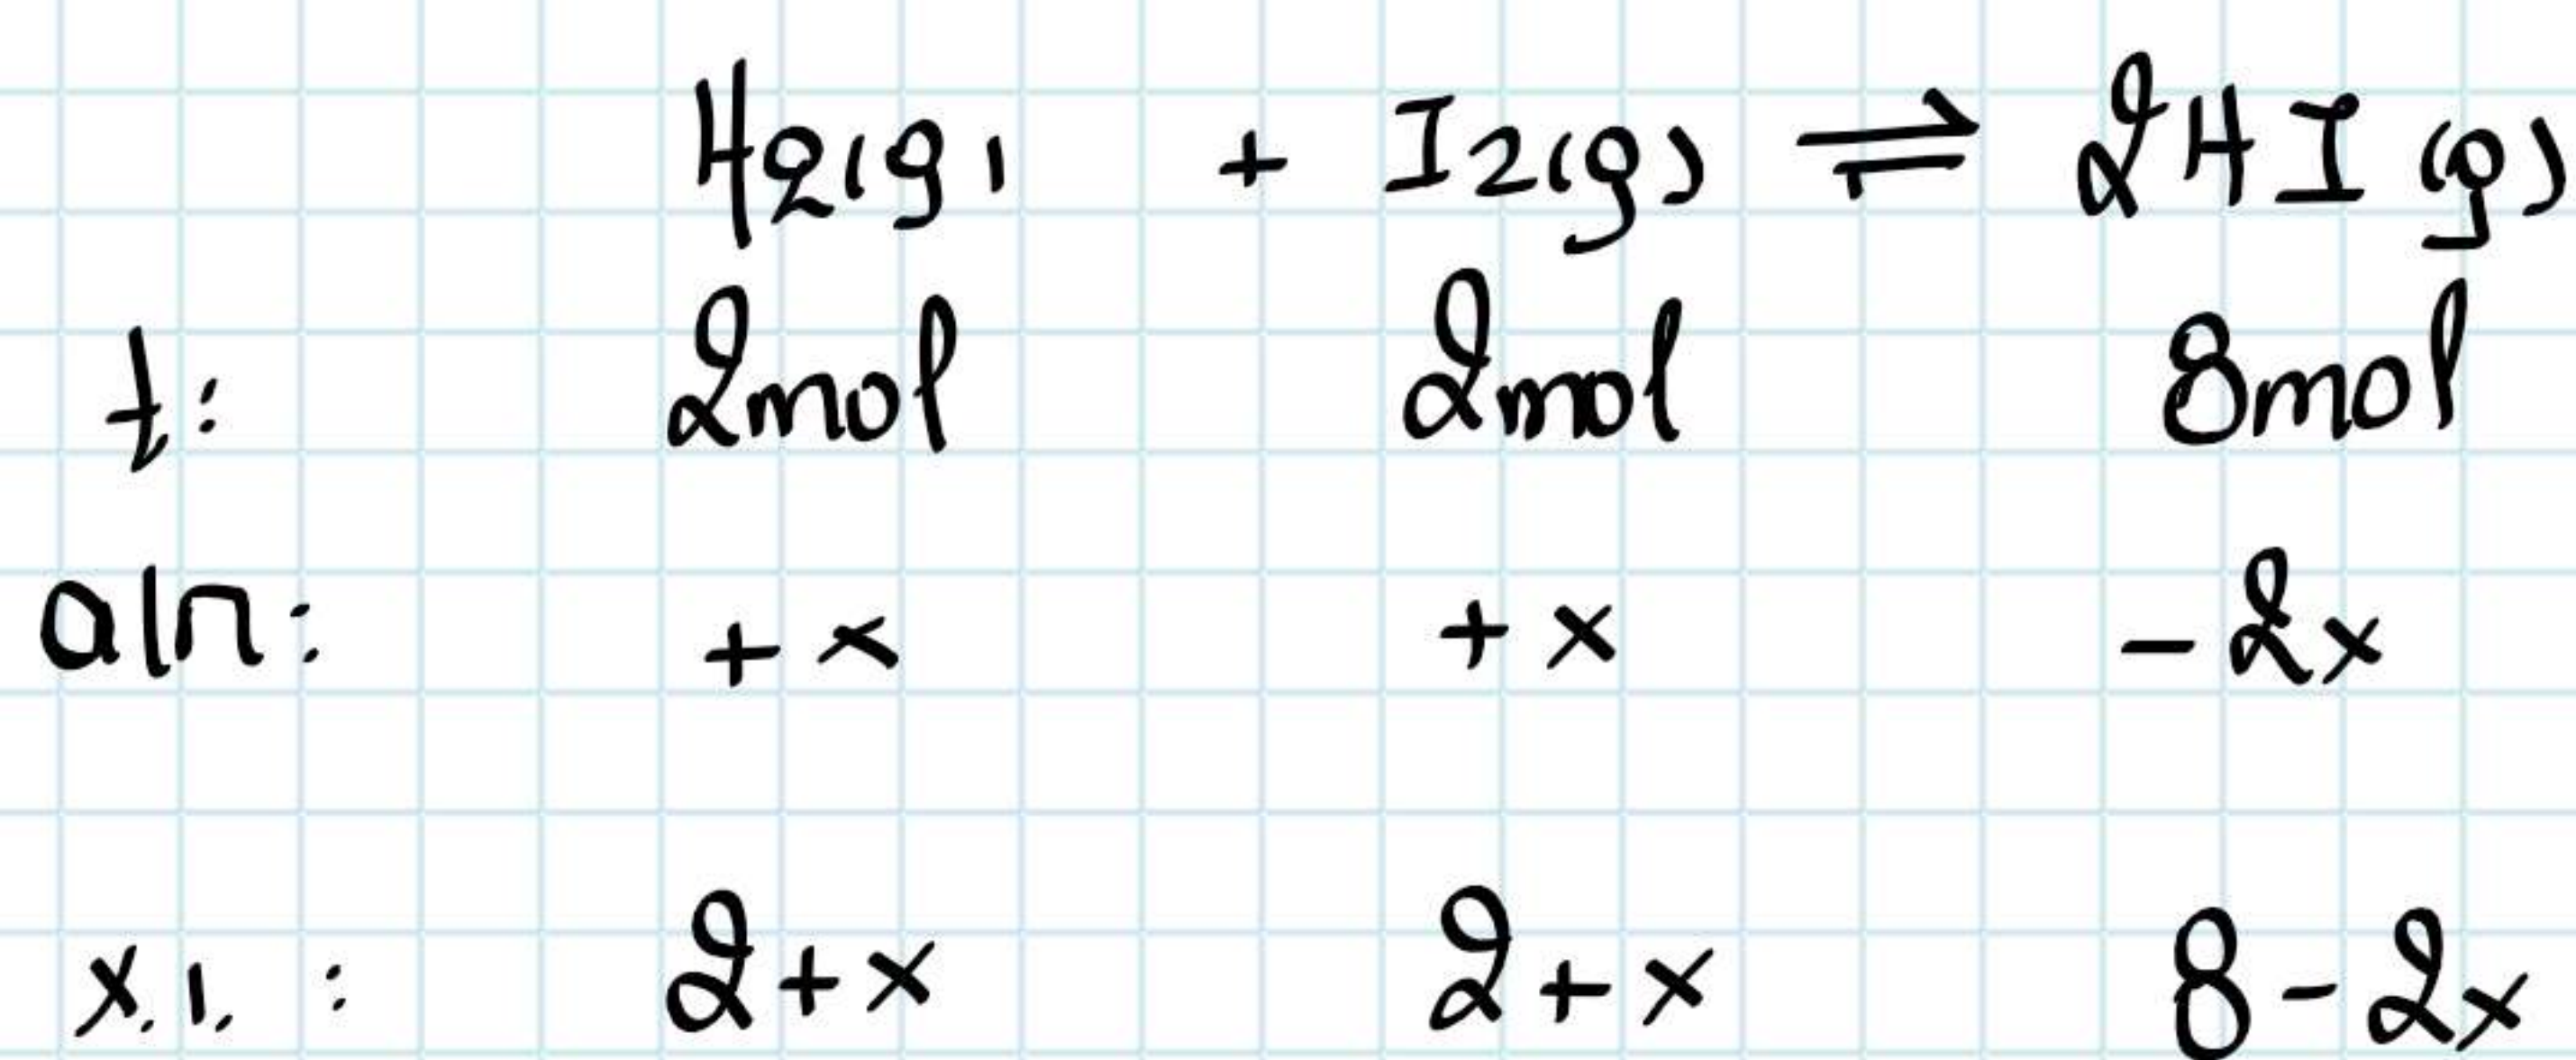 H2(g) + I2(g) ⇌ 2HI(g)
t: 2mol 2mol 8mol
α/π: +x +x -2x
x.ι.: 2+x 2+x 8-2x